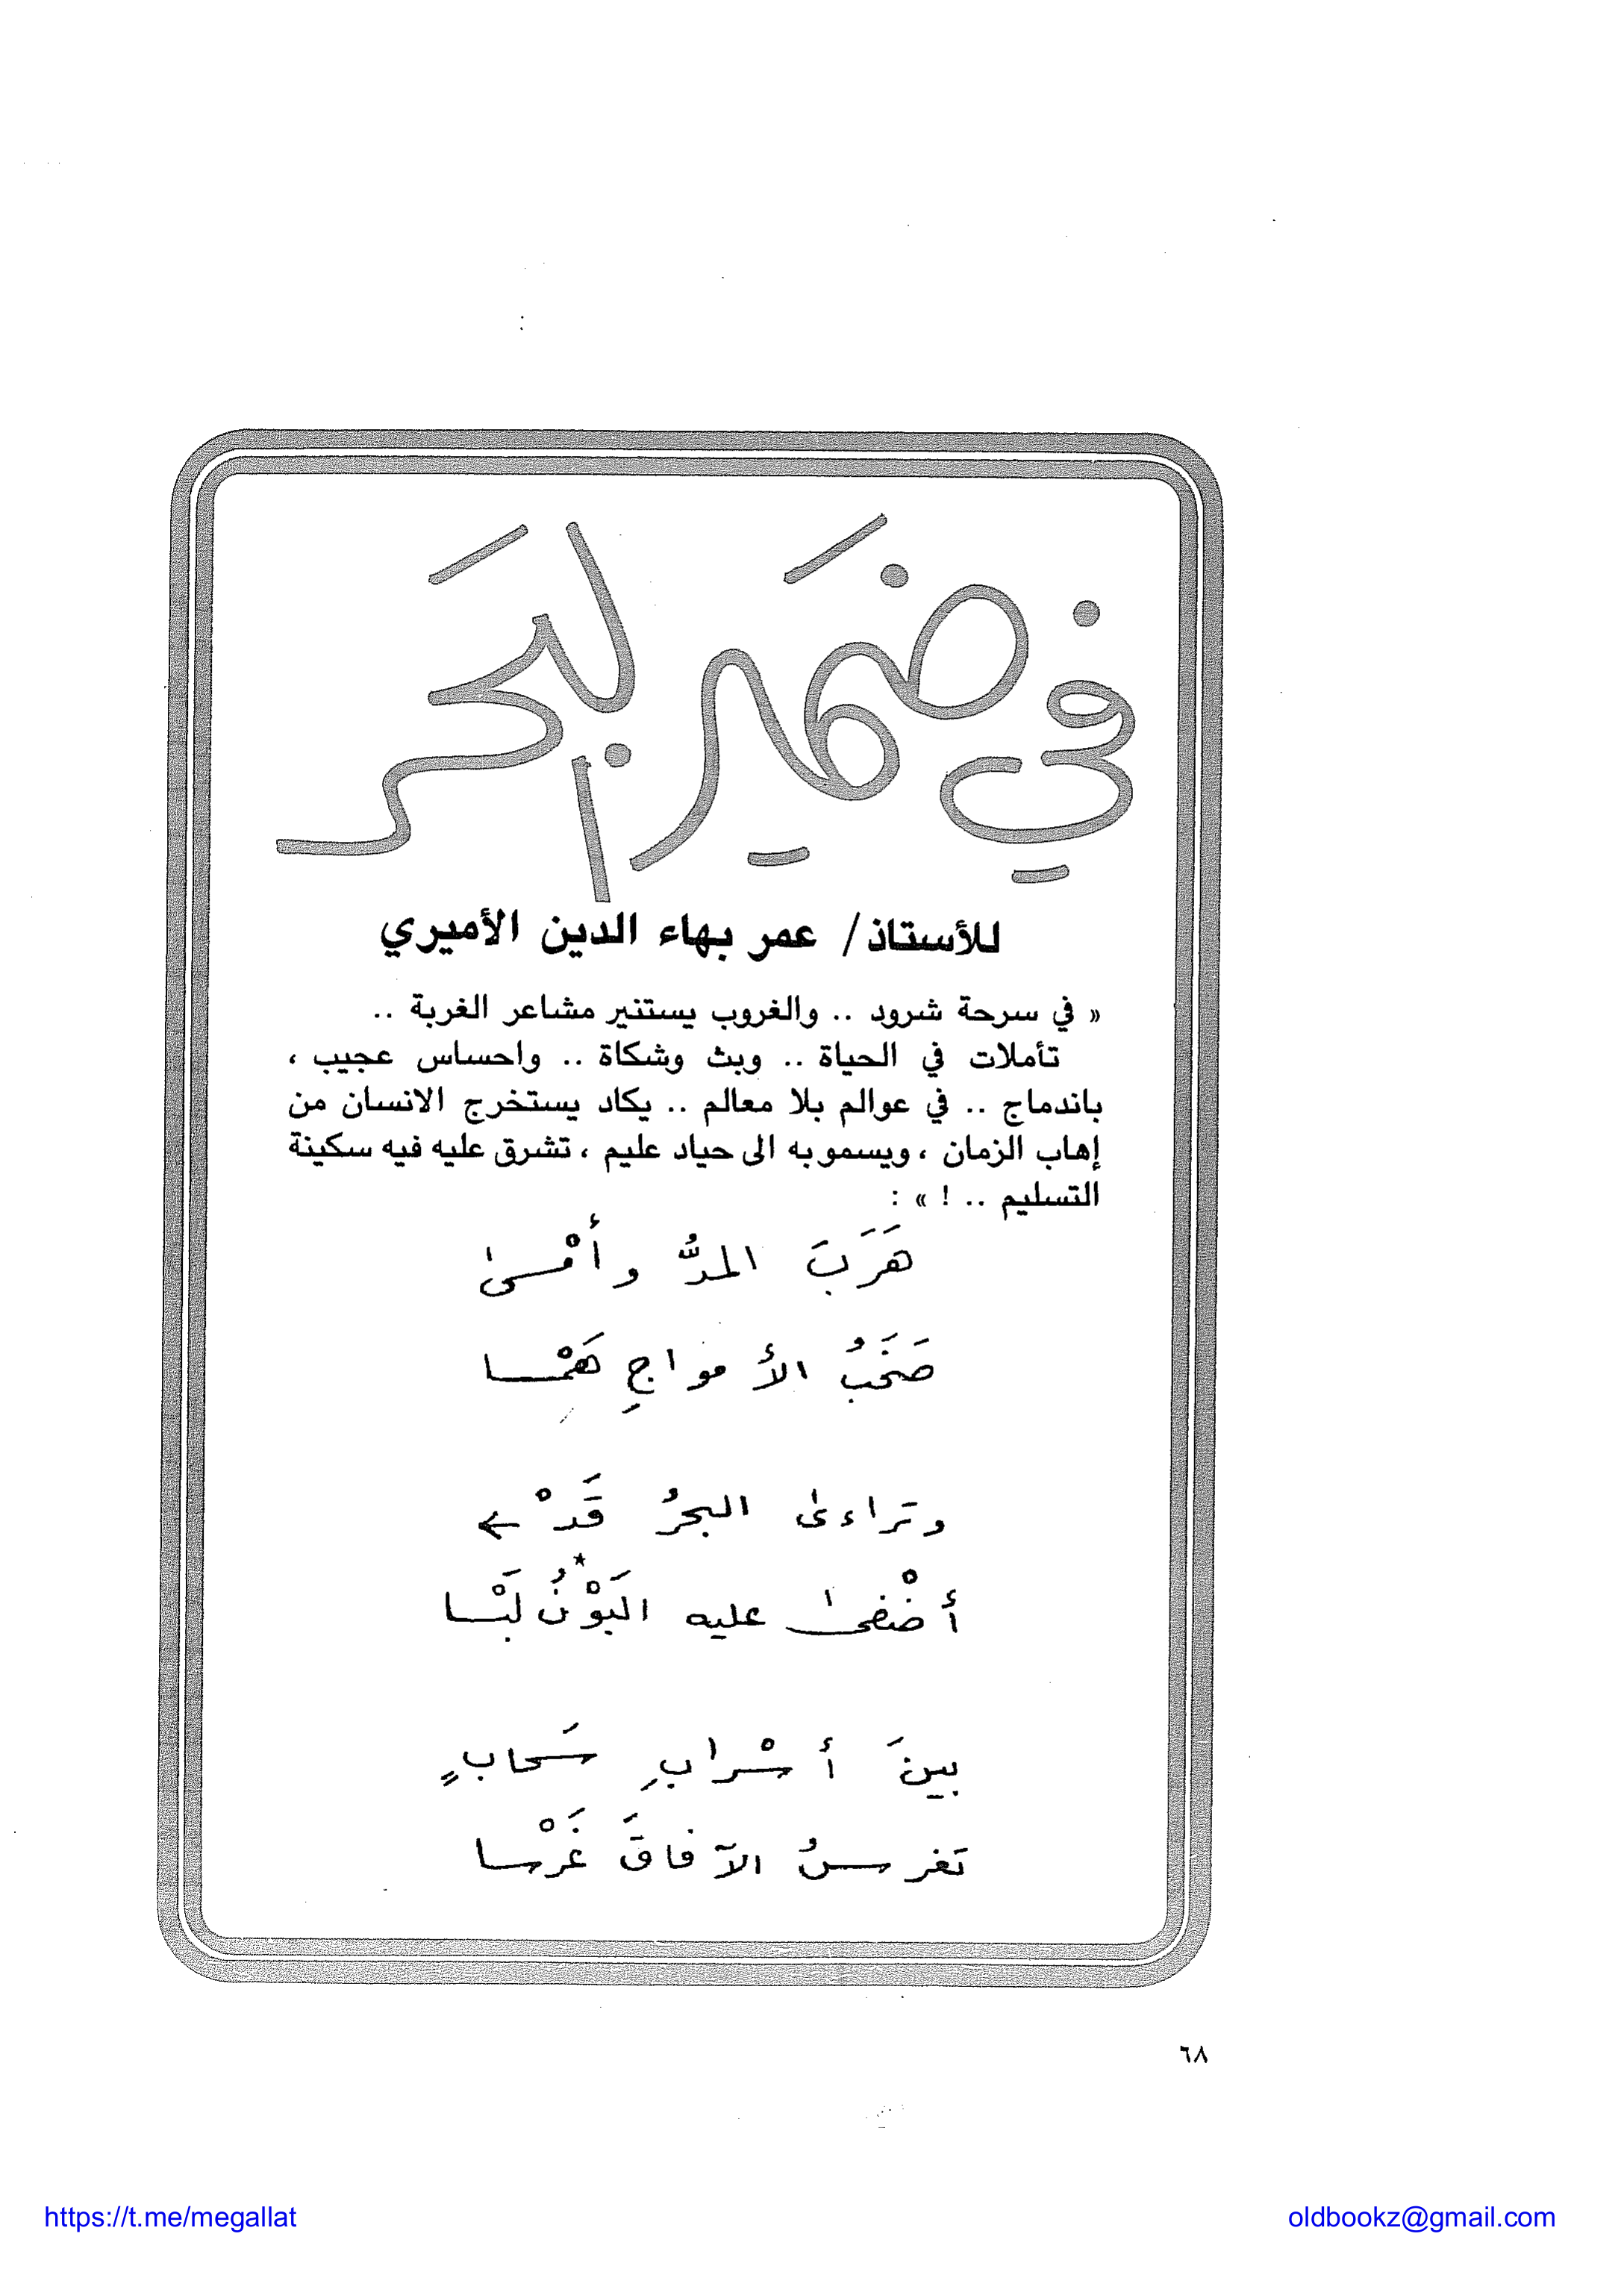 في ضَمِير البَحَر
للأستاذ/ عمر بهاء الدين الأميري
« في سرحة شرود .. والغروب يستنير مشاعر الغربة ..
تأملات في الحياة .. وبث وشكاة .. واحساس عجيب ،
باندماج .. في عوالم بلا معالم .. يكاد يستخرج الانسان من
إهاب الزمان ، ويسمو به الى حياد عليم ، تشرق عليه فيه سكينة
التسليم .. ! » :
هَرَبَ المدُّ وأمْسىٰ
صَخَبُ الأمواجِ هَمْسا
وتَراءىٰ البحرُ قَدْ ←
أضْفىٰ عليه البَوْنُ* لَبْسا
بينَ أسْرابِ سَحابٍ
تَغرسُ الآفاقَ غَرْسا
٦٨
https://t.me/megallat
oldbookz@gmail.com